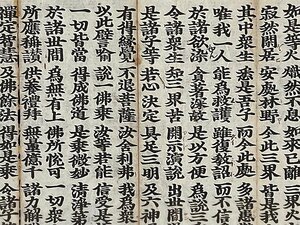 寂然閑居 安處林野 今此三界 皆是我
其中衆生 悉是吾子 而今此處 多諸患
唯我一人 能為救護 雖復教詔 而不信
於諸欲染 貪著深故 以是方便 為說三
令諸衆生 知三界苦 開示演說 出世間
是諸子等 若心決定 具足三明 及六神
有得緣覺 不退菩薩 汝舍利弗 我為衆
以此譬喻 說一佛乘 汝等若能 信受是
一切皆當 得成佛道 是乘微妙 清淨第
於諸世間 為無有上 佛所悅可 一切衆
所應稱讚 供養禮拜 無量億千 諸力解
禪定智慧 及佛餘法 得如是乘 令諸子